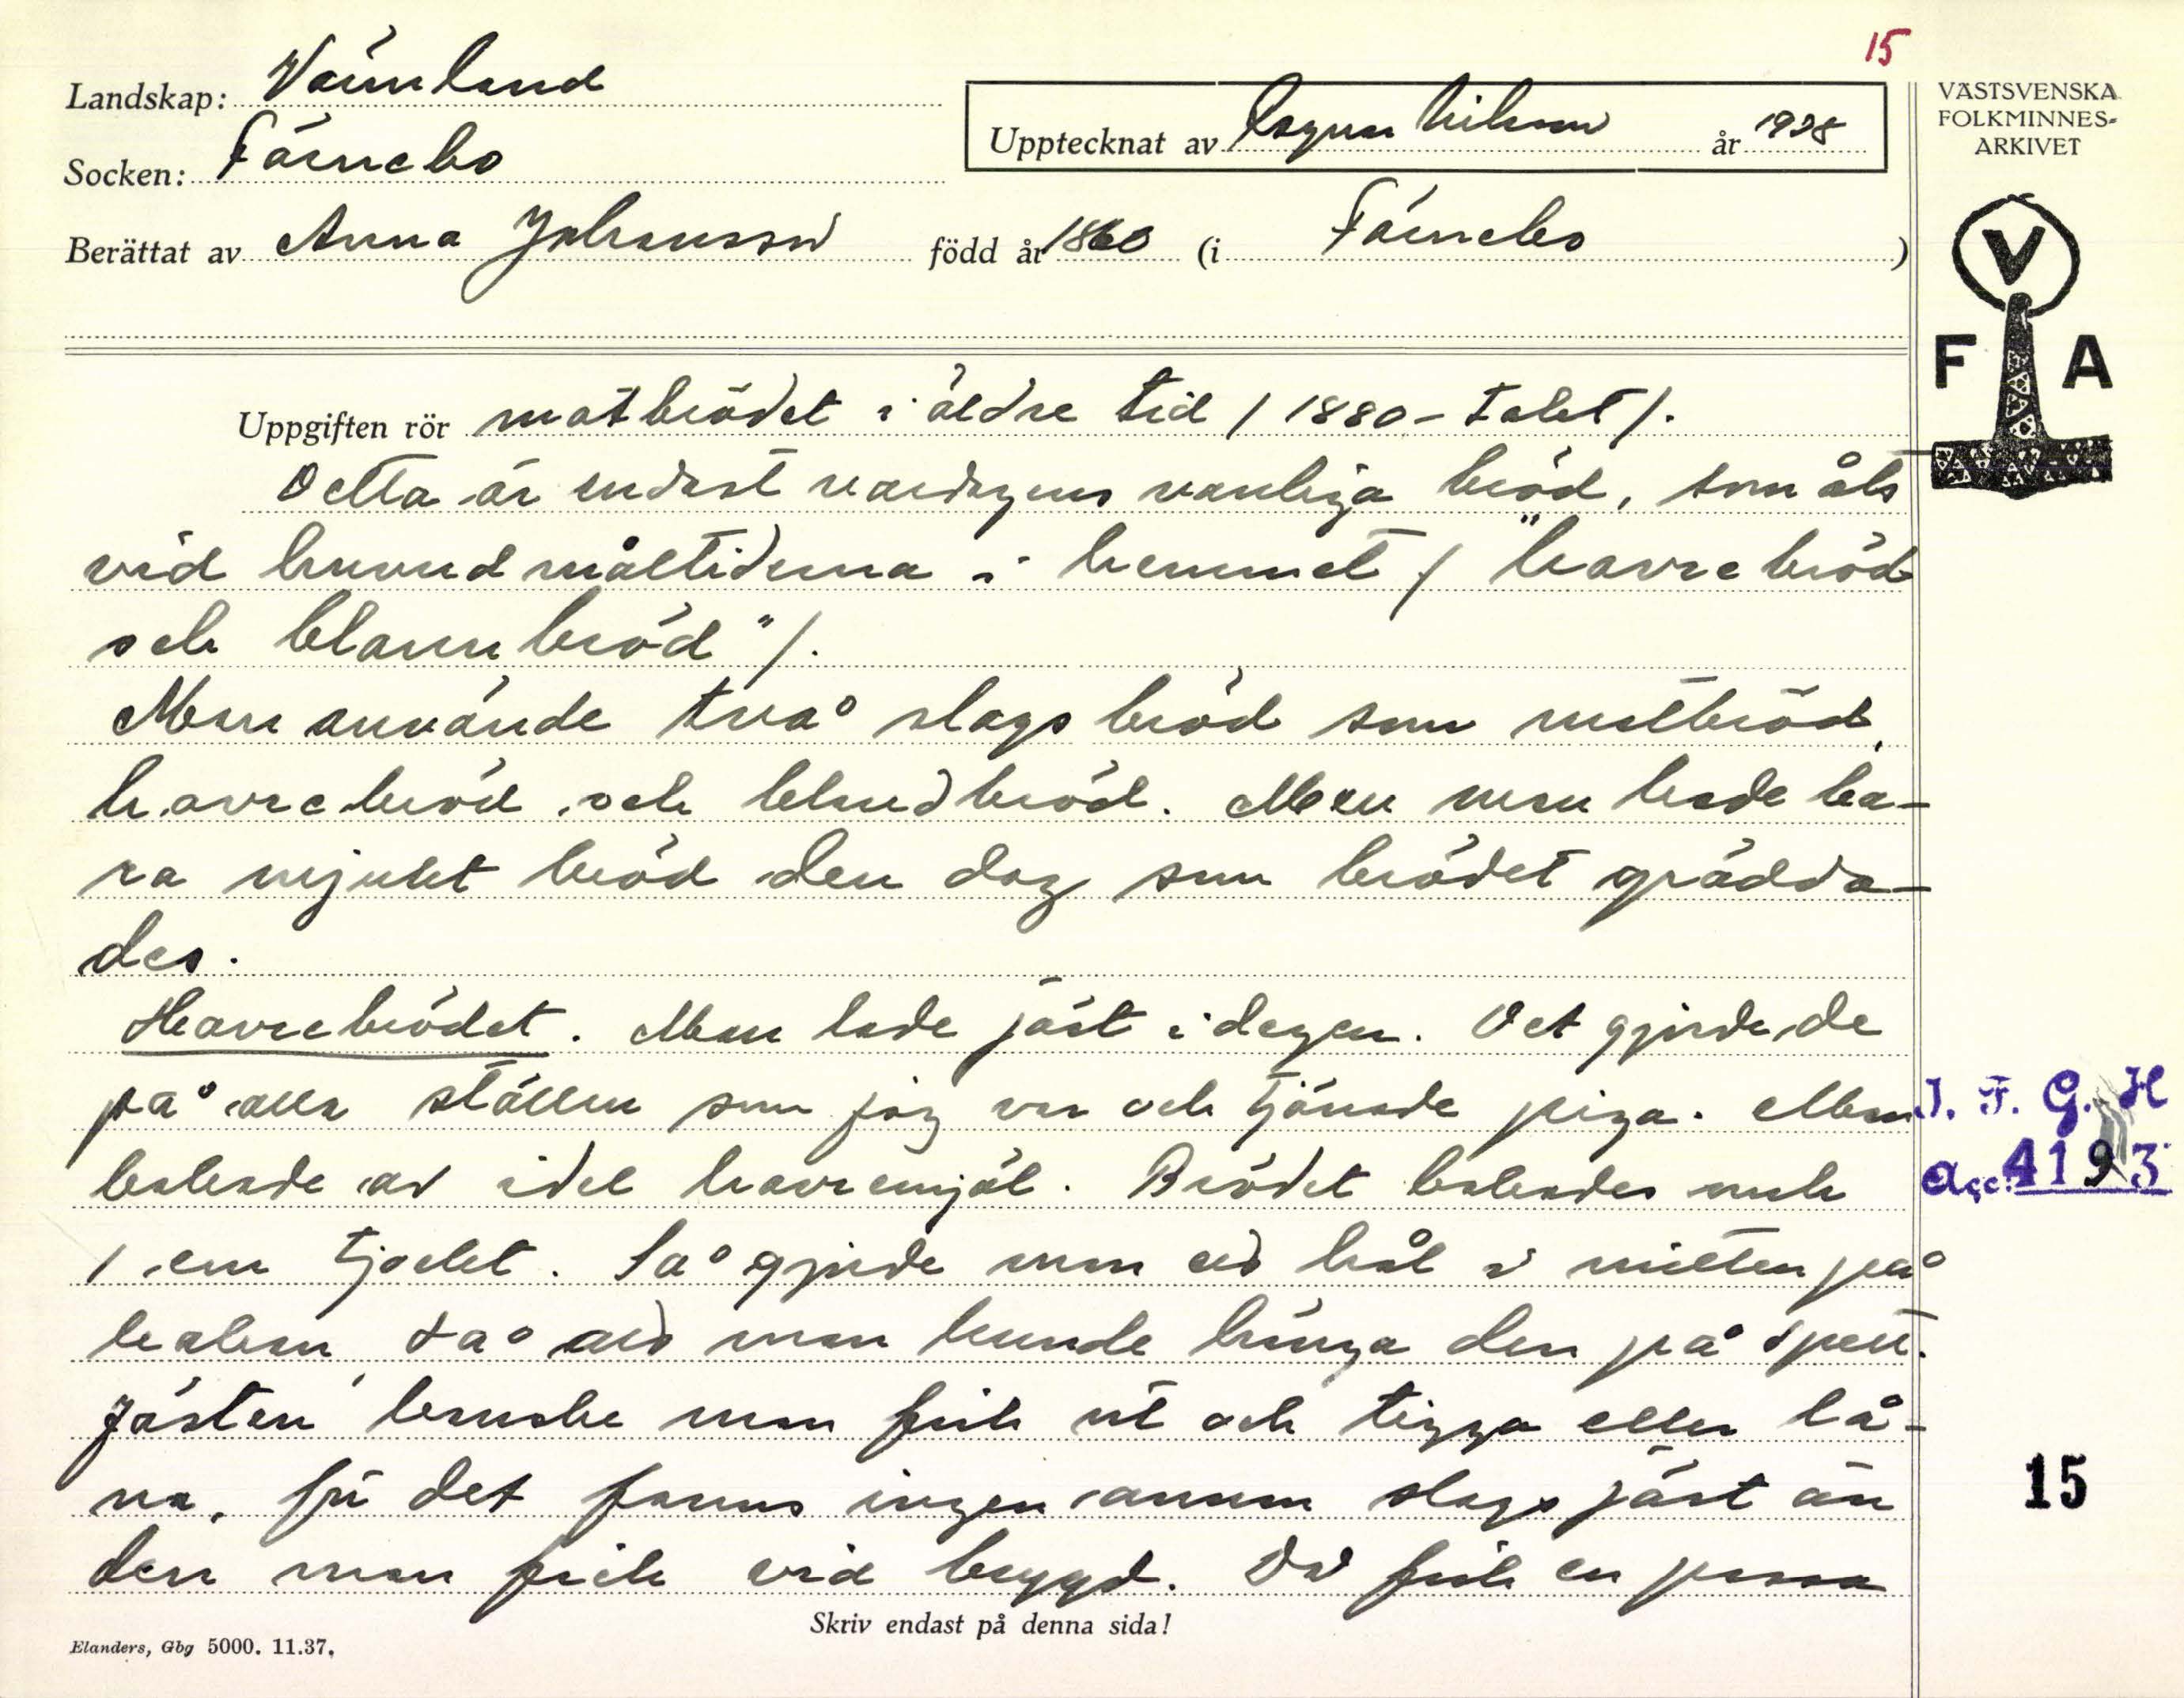 15
Landskap: Värmland
Upptecknat av Ragnar Nilsson år 1938
VÄSTSVENSKA
FOLKMINNES-
ARKIVET
Socken: Färnebo
Berättat av Anna Johansson född år 1860 (i Färnebo )
V
F A
Uppgiften rör matbrödet i äldre tid / 1880-talet /.
Detta är endast vardagens vanliga bröd, som åts
vid huvudmåltiderna i hemmet / "havrebröd
och blannbröd" /.
Man använde två slags bröd som matbröd,
havrebröd och blandbröd. Men man hade ba-
ra mjukt bröd den dag som brödet grädda-
des.
Havrebrödet. Man lade jäst i degen. Det gjorde de
på alla ställen som jag var och tjänade piga. Man
bakade av idel havremjöl. Brödet bakades nog
1 cm tjockt. Så gjorde man ett hål i mitten på
kakan, så att man kunde hänga den på spett.
Jästen kanske man fick ut och tigga eller lå-
na, för det fanns ingen annan slags jäst än
den man fick vid brygd. Då fick en passa
J. F. G. H
Acc. 4193
15
Skriv endast på denna sida!
Elanders, Gbg 5000. 11.37.